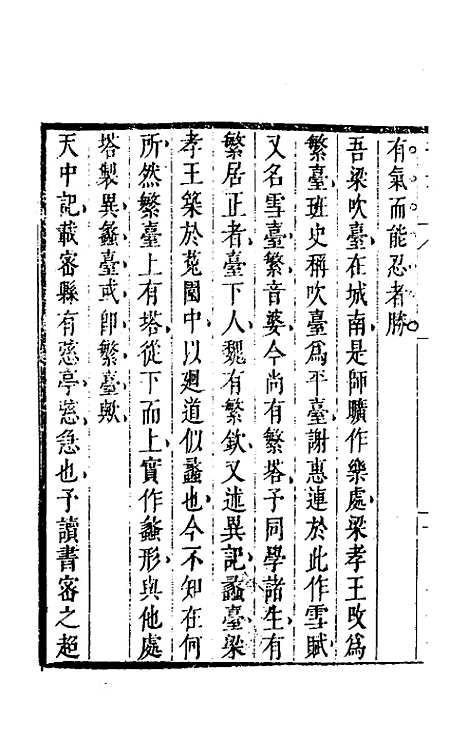 有氣而能忍者勝
吾梁吹臺在城南是師曠作樂處梁孝王攺爲
繁臺班史稱吹臺爲平臺謝惠連於此作雪賦
又名雪臺繁音婆今尚有繁塔予同學諸生有
繁居正者臺下人魏有繁欽又述異記蠡臺梁
孝王築於菟園中以廻道似蠡也今不知在何
所然繁臺上有塔從下而上實作蠡形與他處
塔製異蠡臺或卽繁臺歟
天中記載密縣有慈亭慈急也予讀書密之超